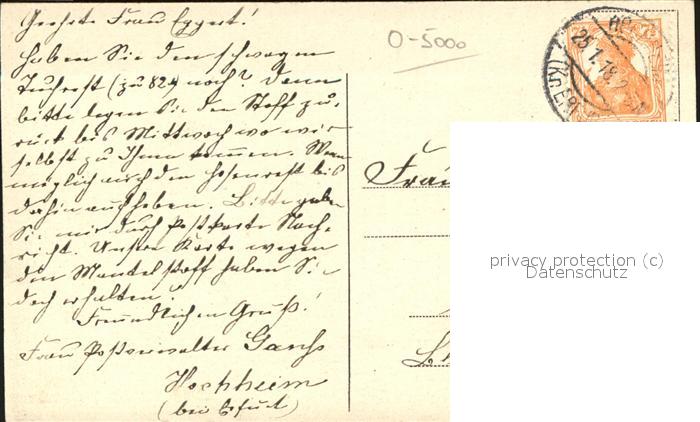 Geehrte Frau Eggert!
Haben Sie den schwarzen
Tuchrest (zu 82 M) noch? Dann
bitte legen Sie den Stoff zu-
rück bis Mittwoch wo wir
selbst zu Ihnen kommen. Wenn
möglich auch den Hosenrest bis
dahin aufheben. Bitte geben
Sie mir durch Postkarte Nach-
richt. Unsere Karte wegen
den Mantelstoff haben Sie
doch erhalten?
Freundlichen Gruß!
Frau Postverwalter
Hochheim
(bei Erfurt)
O-5000
25.1.18
Frau
privacy protection (c)
Datenschutz